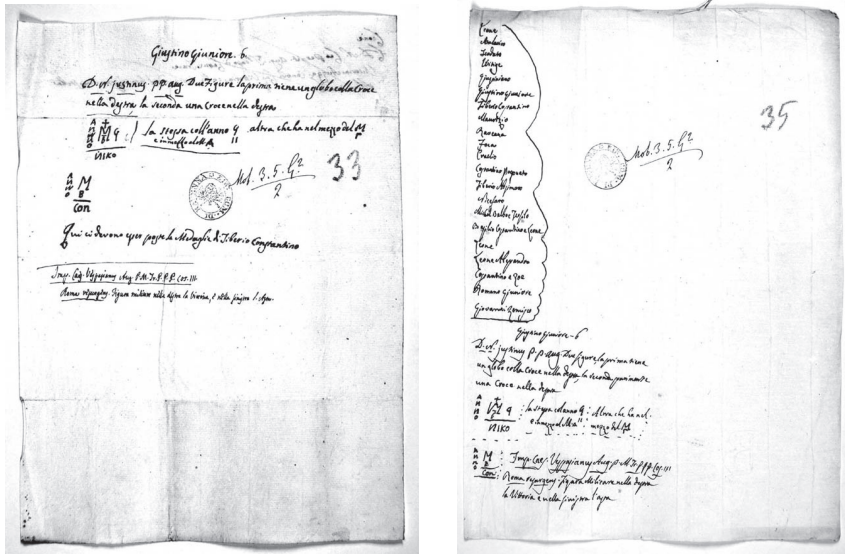 Giustino Giuniore. 6
D. N. justinus p.p. aug. Due Figure la prima tiene un globo colla Croce
nella destra la seconda una Croce nella destra
ANNO M 9 B NIKO
La stessa coll'anno 9 altra che ha nel mezzo del M
e in mezzo del M A 11
ANNO M B CON
Mob. 3. 5. G.2
2
33
Qui ci devono esser poste le Medaglie di Tiberio Constantino
Imp. Caes. Vespasianus Aug. P. M. Tr. P. P. P. Cos. III.
Roma resurgens. Figura militare nella destra la Vittoria, e nella sinistra l'
35
Mob. 3. 5. G.2
2
Leone
Teodato
Giustiniano
Giustino Giuniore
Tiberio Costantino
Maurizio
Ravenna
Foca
Eraclio
Costantino Pogonato
Tiberio
Niceforo
Michele Balbo Teofilo
Basilio Costantino e Leone
Leone
Leone Alessandro
Costantino e Zoe
Romano Giuniore
Giovanni Zemisce
Giuniore - 6
D. N. justinus p. p. aug. Due figure la prima tiene
un globo colla Croce nella destra, la seconda parimente
una Croce nella destra
ANNO M 9 B NIKO
la stessa coll'anno 9: Altra che ha nel
e in mezzo del M A 11 mezzo del M
ANNO M B CON
Imp. Caes. Vespasianus Aug. P. M. Tr. P. P. P. Cos. III
Roma resurgens. figura Militare nella destra
la Vittoria e nella sinistra l'asta